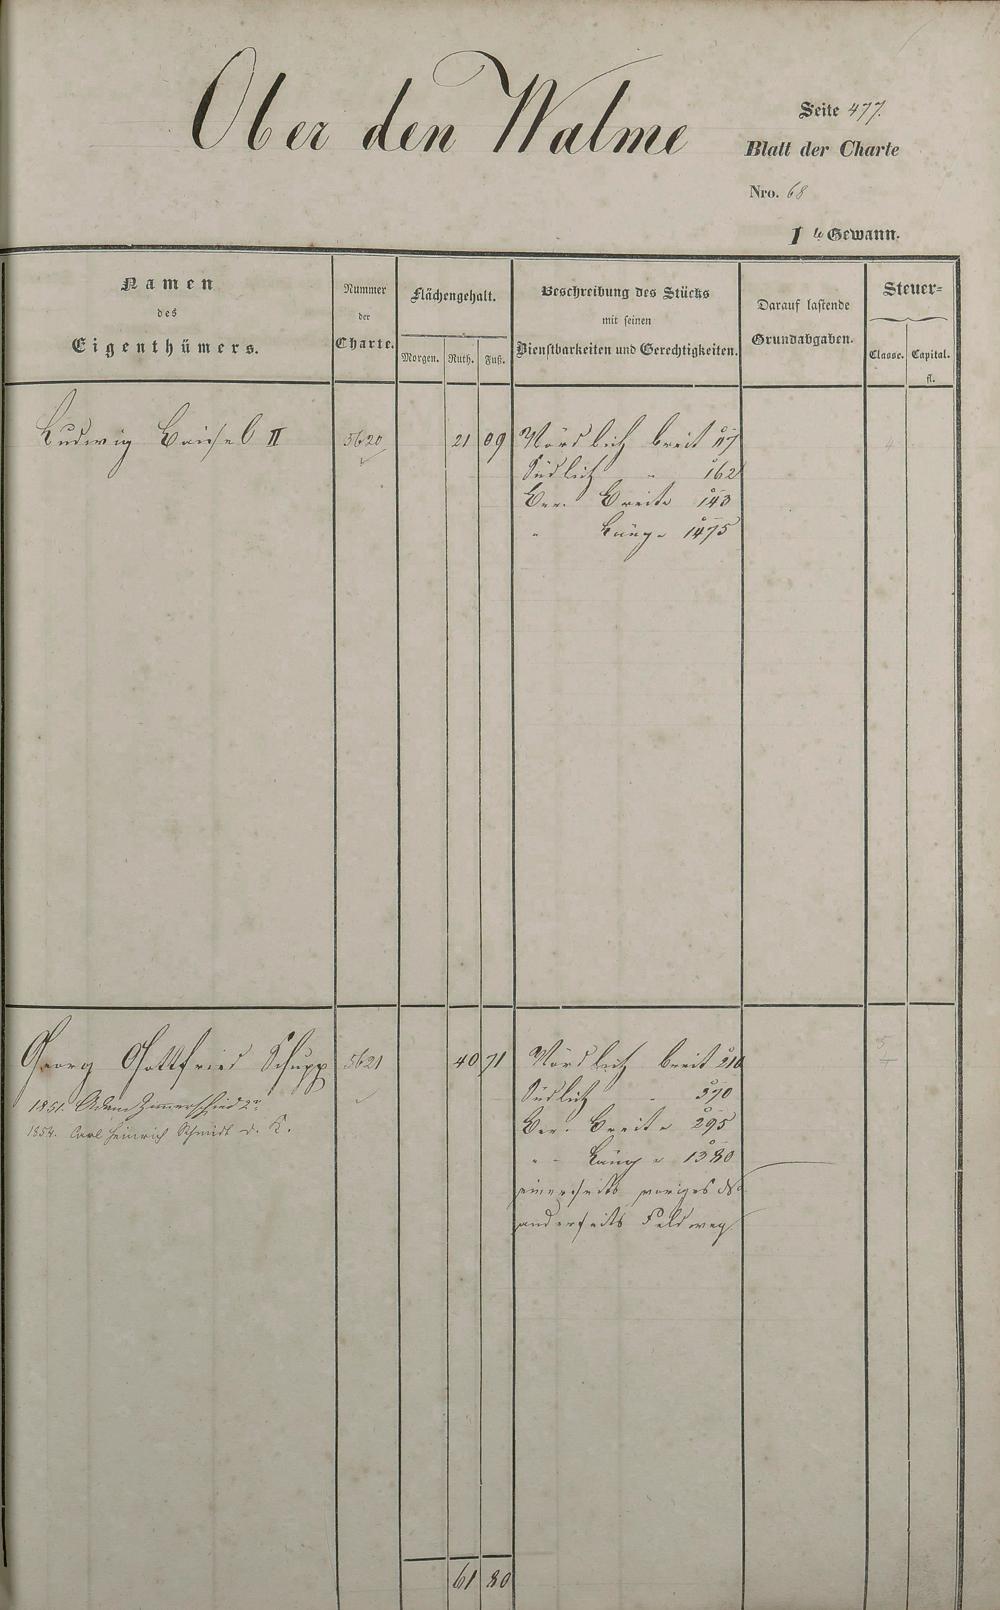 Ober den Walme
Seite 477.
Blatt der Charte
Nro. 68
1 te Gewann.
Namen
des
Eigenthümers.
Nummer
der
Charte.
Flächengehalt.
Morgen. Ruth. Fuß.
Beschreibung des Stücks
mit seinen
Dienstbarkeiten und Gerechtigkeiten.
Darauf lastende
Grundabgaben.
Steuer=
Classe. Capital.
fl.
Ludwig II 5620 21 09 Nördlich breit 117
Südlich " 162
Ber. Breite 143
" Länge 1475
Georg Gottfried Schupp 5621 40 71 Nördlich breit 210
1851. Adam Zimmerschied 2r
Südlich " 370
1854. Carl Heinrich Schmidt d. K.
Ber. Breite 295
" Länge 1380
einerseits voriges
anderseits Feldweg
61 80